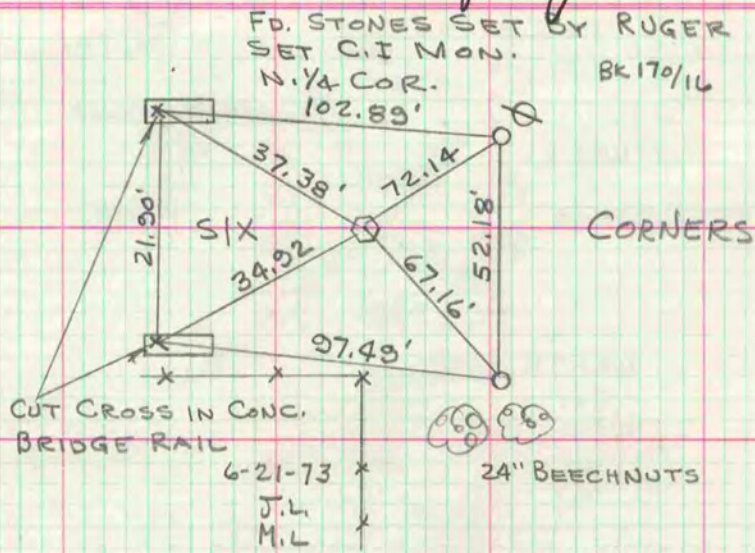 FD. STONES SET BY RUGER
SET C.I MON.
N. 1/4 COR.
BK 170/16
102.89'
37.38'
72.14
21.90'
S|X
52.18'
CORNERS
34.92
67.16'
97.49'
CUT CROSS IN CONC.
BRIDGE RAIL
6-21-73
J.L.
M.L
24" BEECHNUTS